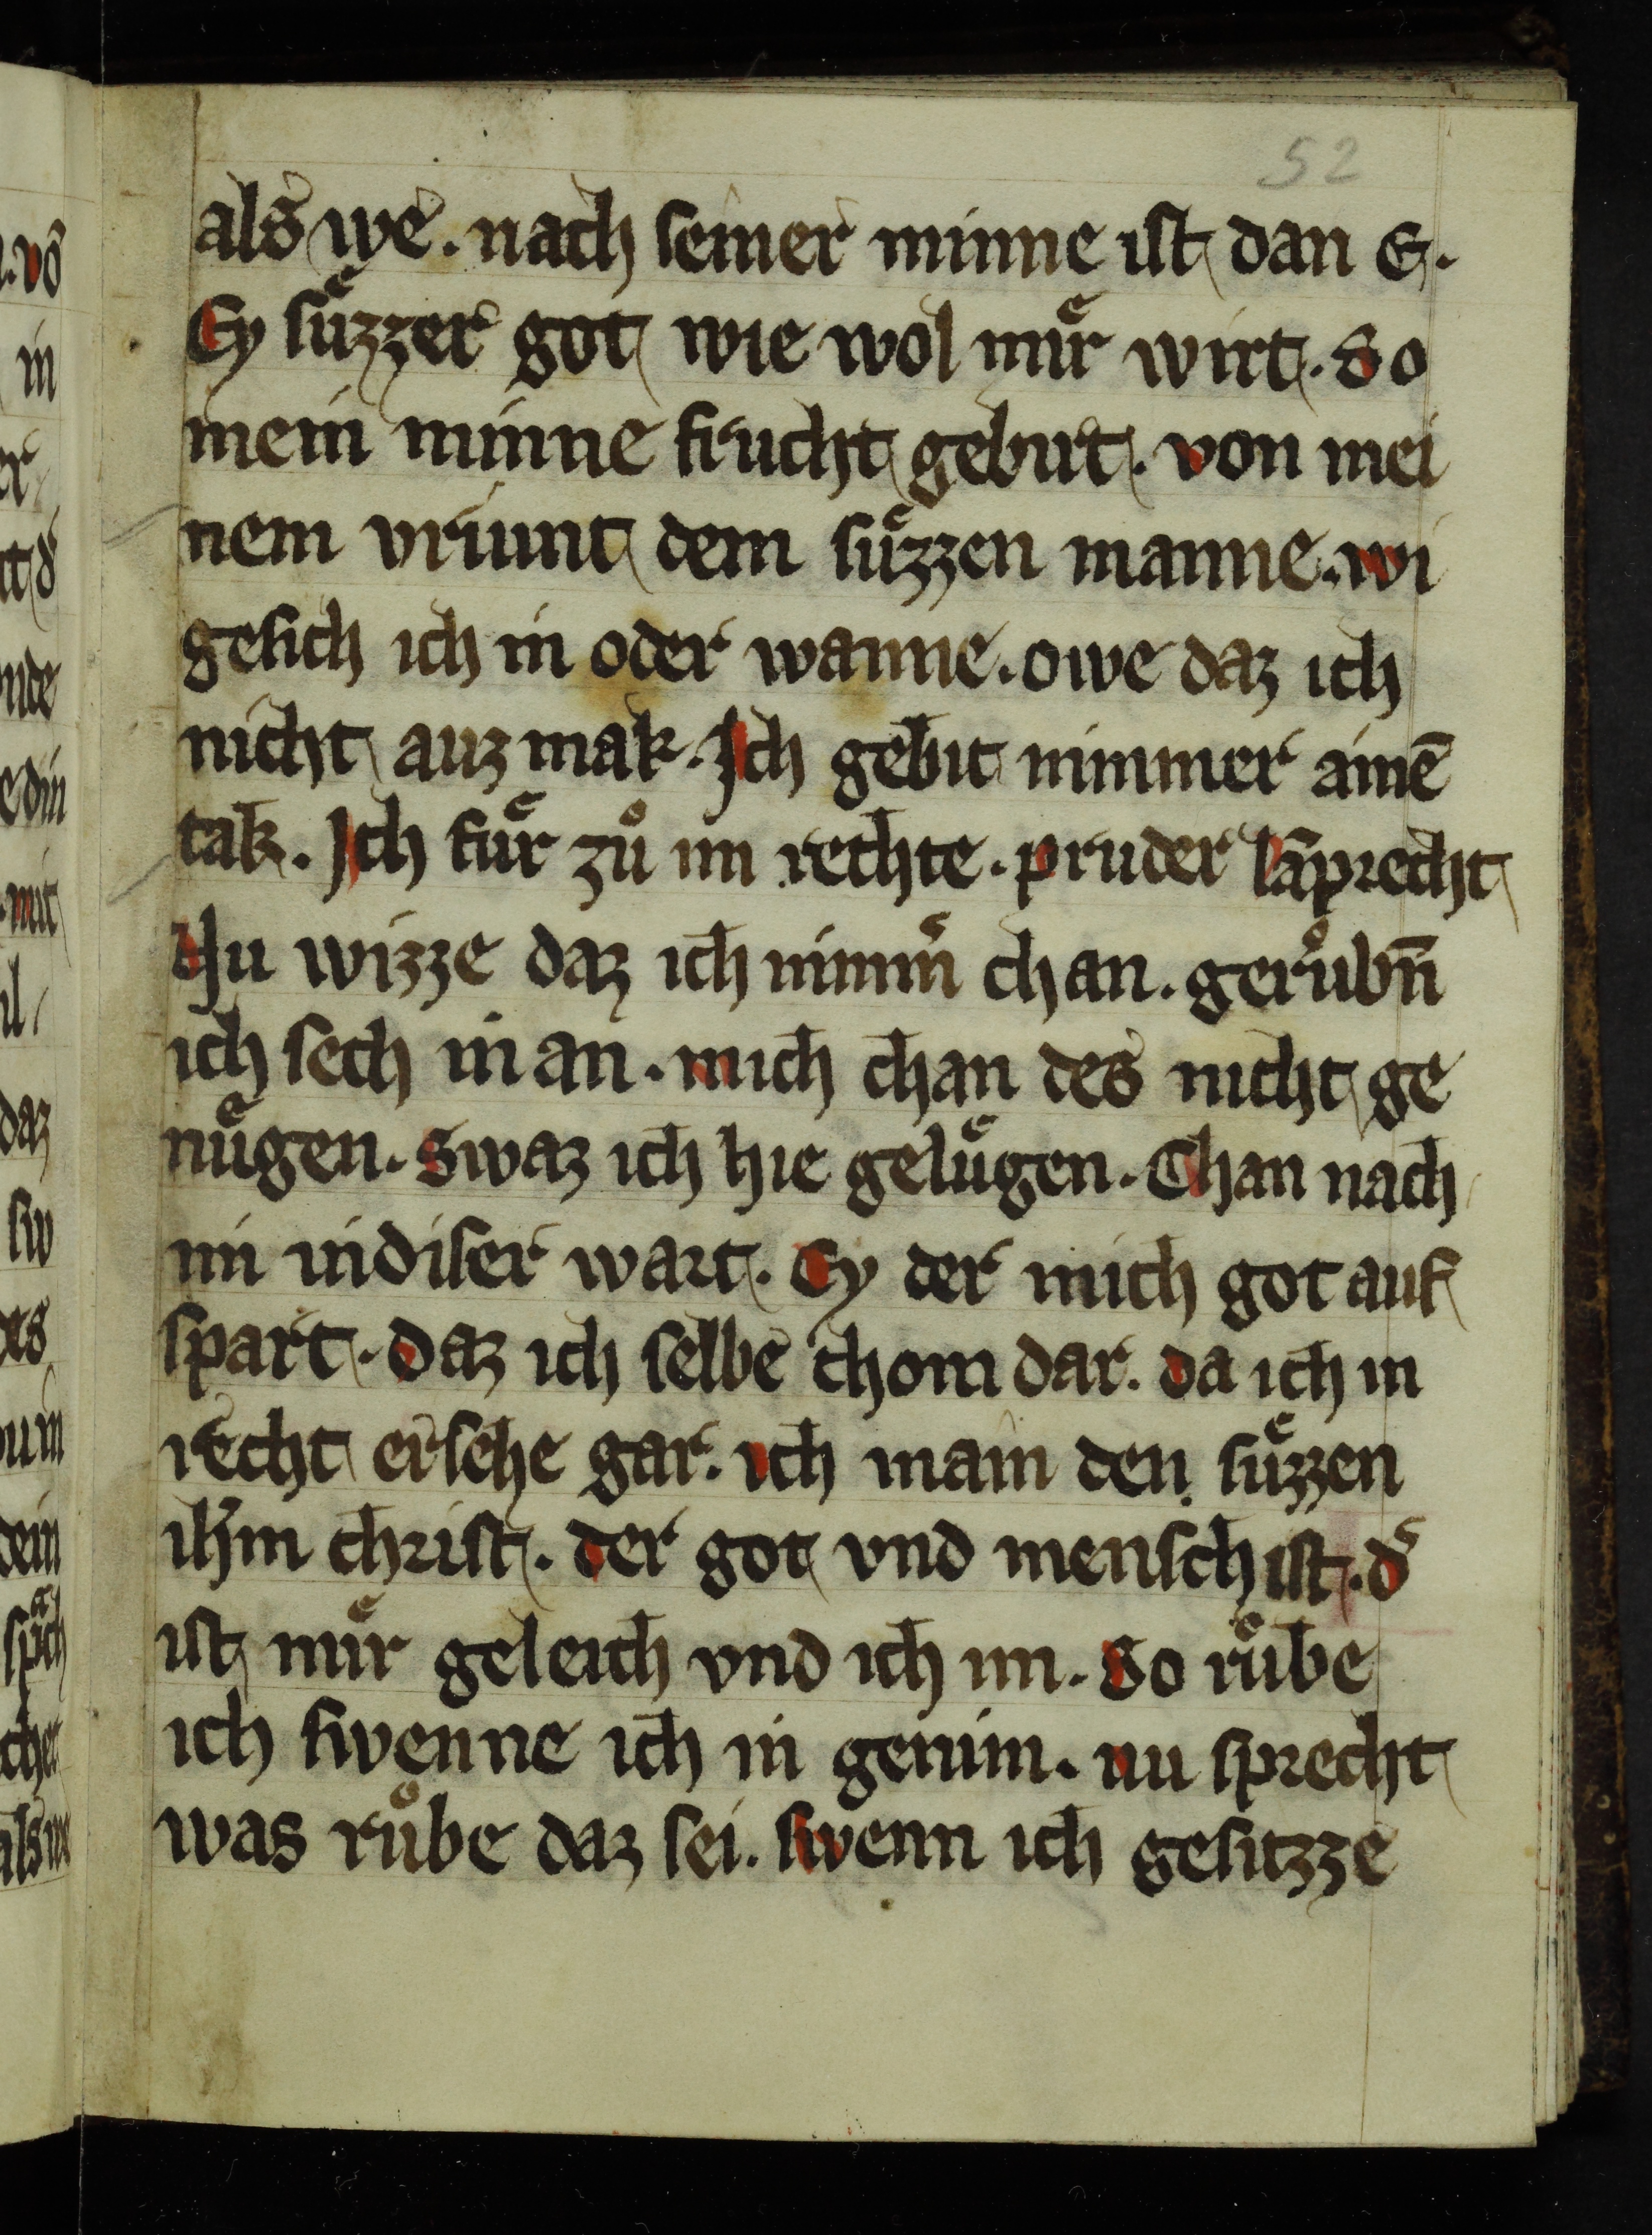 52
als we. nach seiner minne ist dan E.
Ey suͤzzer got wie wol muͤr wirt. So
mein minne frucht gebirt. von mei
nem vriunt dem suͤzzen manne. wi
gesich ich in oder wanne. owe daz ich
nicht auz mak. Ich gebit nimmer ainē
tak. Ich fuͤr zuͦ im rechte. pruder lāprecht
Nu wizze daz ich nimm͛ chan. geruͦbn̄
ich sech in an. mich chan des nicht ge
nuͤgen. Swaz ich hie geluͤgen. Chan nach
im in diser wart. Ey der mich got auf
spart. Daz ich selbe chom dar. da ich in
recht ersehe gar. ich main den suͤzzen
ih̄m christ. der got vnd mensch ist. d͛
ist muͤr geleich vnd ich im. So ruͤbe
ich swenne ich in genim. nu sprecht
was ruͦbe daz sei. swenn ich gesitzze